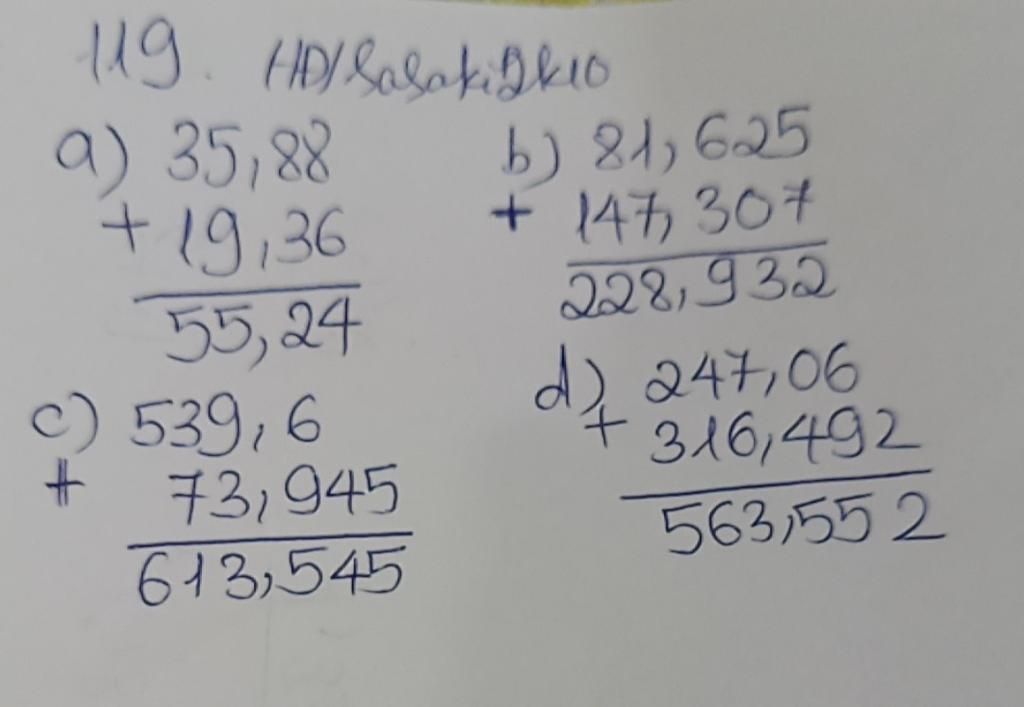 119. HD/SasakiDk10
a) 35,88
+ 19,36
55,24
b) 81,625
+ 147,307
228,932
c) 539,6
+ 73,945
613,545
d) 247,06
+ 316,492
563,552